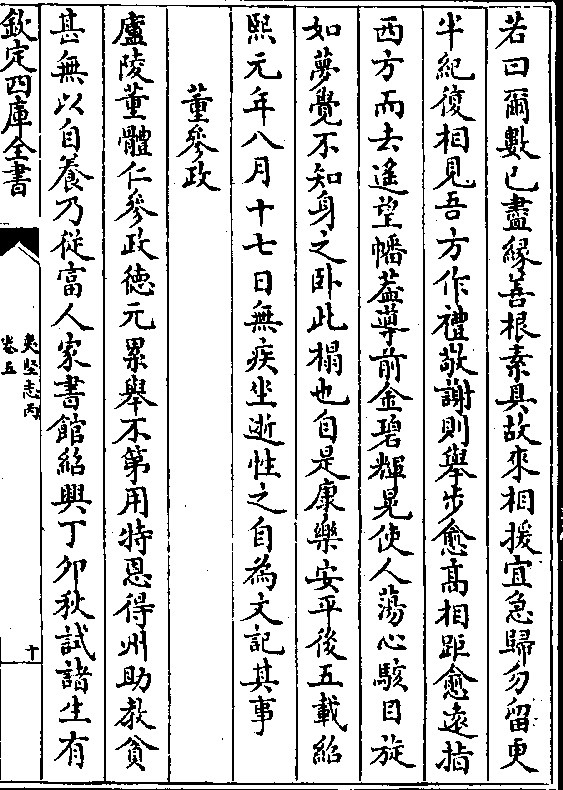 若曰爾數已盡緣善根素具故來相援宜急歸勿留更
半紀復相見吾方作禮敬謝則舉步愈髙相距愈遠指
西方而去遙望幡葢導前金碧輝晃使人蕩心駭目旋
如夢覺不知身之卧此榻也自是康樂安平後五載紹
熙元年八月十七日無疾坐逝性之自為文記其事
董參政
盧陵董體仁參政徳元累舉不第用特恩得州助教貧
甚無以自養乃從富人家書館紹興丁卯秋試諸生有
欽定四庫全書
夷堅志丙
卷五
十